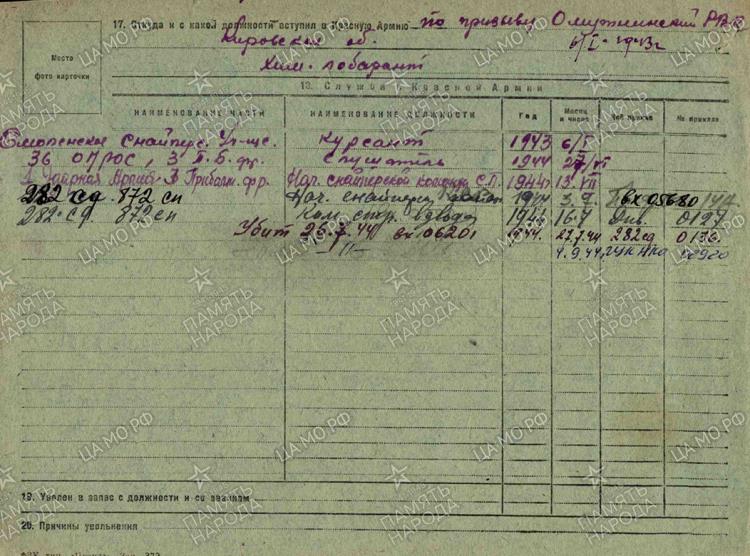 17. Откуда и с какой должности вступил в Красную Армию по призыву Омутнинский РВК
Кировская об. 6/I-1943г
Место
фото карточки
Хим. лобарант
18. Служба в Красной Армии
НАИМЕНОВАНИЕ ЧАСТИ НАИМЕНОВАНИЕ ДОЛЖНОСТИ Год Месяц и число Чей приказ № приказа
Смоленское снайпер. Уч-ще. Курсант 1943 6/I
36 ОПРОС, 3 П.Б. фр. Слушатель 1944 27/VI
1 Ударная Армия 3 Прибалт. фр. Нач. снайперской команды С.П. 1944г 13 VII
282 сд 872 сп Нач. снайперс 1944 3.7. вх 05680
282 сд 872 сп Ком. стр. взвода 1944 16.7 Див. 0127
Убит 26.7.44г вх 06201 1944. 27.7.44 282 сд 0136
-//- 4.9.44.
19. Уволен в запас с должности и со званием
20. Причины увольнения
ПАМЯТЬ НАРОДА
ЦАМО.РФ